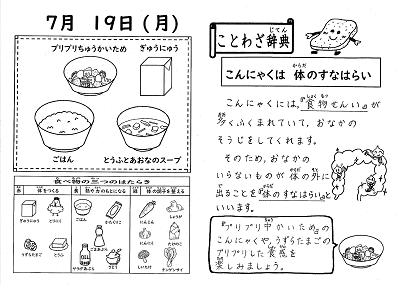 7月 19日(月)
プリプリちゅうかいため
ぎゅうにゅう
ごはん
とうふとあおなのスープ
食べ物の三つのはたらき
赤 体をつくる
黄 熱や力のもとになる
緑 体の調子を整える
ぎゅうにゅう
とうふ
うずらたまご
ごはん
かたくりこ
ごまあぶら
さとう
にんじん
しょうが
しいたけ
たけのこ
チンゲンサイ
じてん
ことわざ辞典
からだ
こんにゃくは 体のすなはらい
しょく もつ
こんにゃくには、"食物せんい"が
多くふくまれていて、おなかの
そうじをしてくれます。
そのため、おなかの
いらないものが 体の外に
出ることを"体のすなはらい"と
いいます。
"プリプリ中かいため"の
こんにゃくや、うずらたまごの
プリプリした食感を
楽しみましょう。